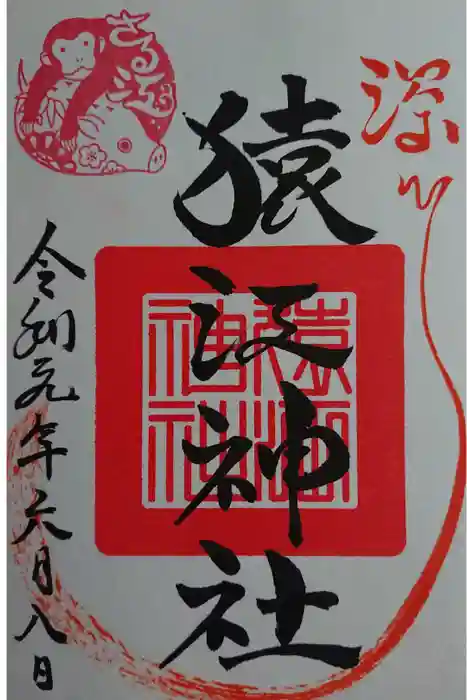 深川
猿江神社
猿江
神社
さるえ
令和元年六月八日